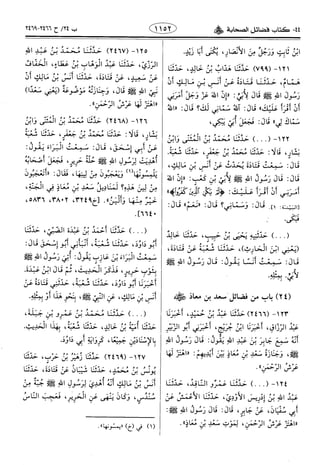 ٤٤- كتاب فضائل الصحابة
١١٥٢
ب ٢٤/ ح ٢٤٦٦-٢٤٦٩
ابن ثابت ورجل من الأنصار، يكنى أبا زيد.
١٢١- (٧٩٩) حدثنا هداب بن خالد، حدثنا
همام، حدثنا قتادة، عن أنس بن مالك أن
رسول الله ﷺ قال لأبي: «إن الله عز وجل أمرني
أن أقرأ عليك» قال: آلله سماني لك؟ قال: «الله
سماك لي» قال: فجعل أبي يبكي.
١٢٢- (...) حدثنا محمد بن المثنى وابن
بشار، قالا: حدثنا محمد بن جعفر، حدثنا شعبة
قال: سمعت قتادة يحدث عن أنس بن مالك،
قال: قال رسول الله ﷺ لأبي بن كعب: «إن الله
أمرني أن أقرأ عليك: ﴿لم يكن الذين كفروا﴾
قال: وسماني؟ قال: «نعم» قال:
فبكى.
(...) حدثنيه يحيى بن حبيب، حدثنا خالد
(يعني ابن الحارث)، حدثنا شعبة عن قتادة،
قال: سمعت أنسا يقول: قال رسول الله ﷺ
لأبي. بمثله.
(٢٤) باب من فضائل سعد بن معاذ
١٢٣- (٢٤٦٦) حدثنا عبد بن حميد، أخبرنا
عبد الرزاق، أخبرنا ابن جريج، أخبرني أبو الزبير
أنه سمع جابر بن عبد الله يقول: قال رسول الله
ﷺ، وجنازة سعد بن معاذ بين أيديهم: «اهتز لها
عرش الرحمن».
١٢٤- (...) حدثنا عمرو الناقد، حدثنا
عبد الله بن إدريس الأودي، حدثنا الأعمش عن
أبي سفيان، عن جابر، قال: قال رسول الله ﷺ:
«اهتز عرش الرحمن، لموت سعد بن معاذ».
١٢٥- (٢٤٦٧) حدثنا محمد بن عبد الله
الرزي، حدثنا عبد الوهاب بن عطاء، الخفاف
عن سعيد، عن قتادة، حدثنا أنس بن مالك أن
نبي الله ﷺ قال، وجنازته موضوعة (يعني سعدا)
«اهتز لها عرش الرحمن».
١٢٦- (٢٤٦٨) حدثنا محمد بن المثنى وابن
بشار، قالا: حدثنا محمد بن جعفر، حدثنا شعبة
عن أبي إسحق، قال: سمعت البراء يقول:
أهديت لرسول الله ﷺ حلة حرير، فجعل أصحابه
يلمسونها(١) ويعجبون من لينها، فقال: «أتعجبون
من لين هذه؟ لمناديل سعد بن معاذ في الجنة،
خير منها وألين». [خ٣٢٤٩، ٣٨٠٢، ٥٨٣٦،
٦٦٤٠].
(...) حدثنا أحمد بن عبدة الضبي، حدثنا
أبو داود، حدثنا شعبة، أنبأني أبو إسحق قال:
سمعت البراء بن عازب يقول: أتي رسول الله ﷺ
بثوب حرير، فذكر الحديث، ثم قال ابن عبدة:
أخبرنا أبو داود، حدثنا شعبة، حدثني قتادة عن
أنس بن مالك، عن النبي ﷺ، بنحو هذا أو بمثله.
(...) حدثنا محمد بن عمرو بن جبلة،
حدثنا أمية بن خالد، حدثنا شعبة، بهذا الحديث.
بالإسنادين جميعا، كرواية أبي داود.
١٢٧- (٢٤٦٩) حدثنا زهير بن حرب، حدثنا
يونس بن محمد، حدثنا شيبان عن قتادة، حدثنا
أنس بن مالك أنه أهدي لرسول الله ﷺ جبة من
سندس، وكان ينهى عن الحرير، فعجب الناس
(١) في (خ) «يمسونها».